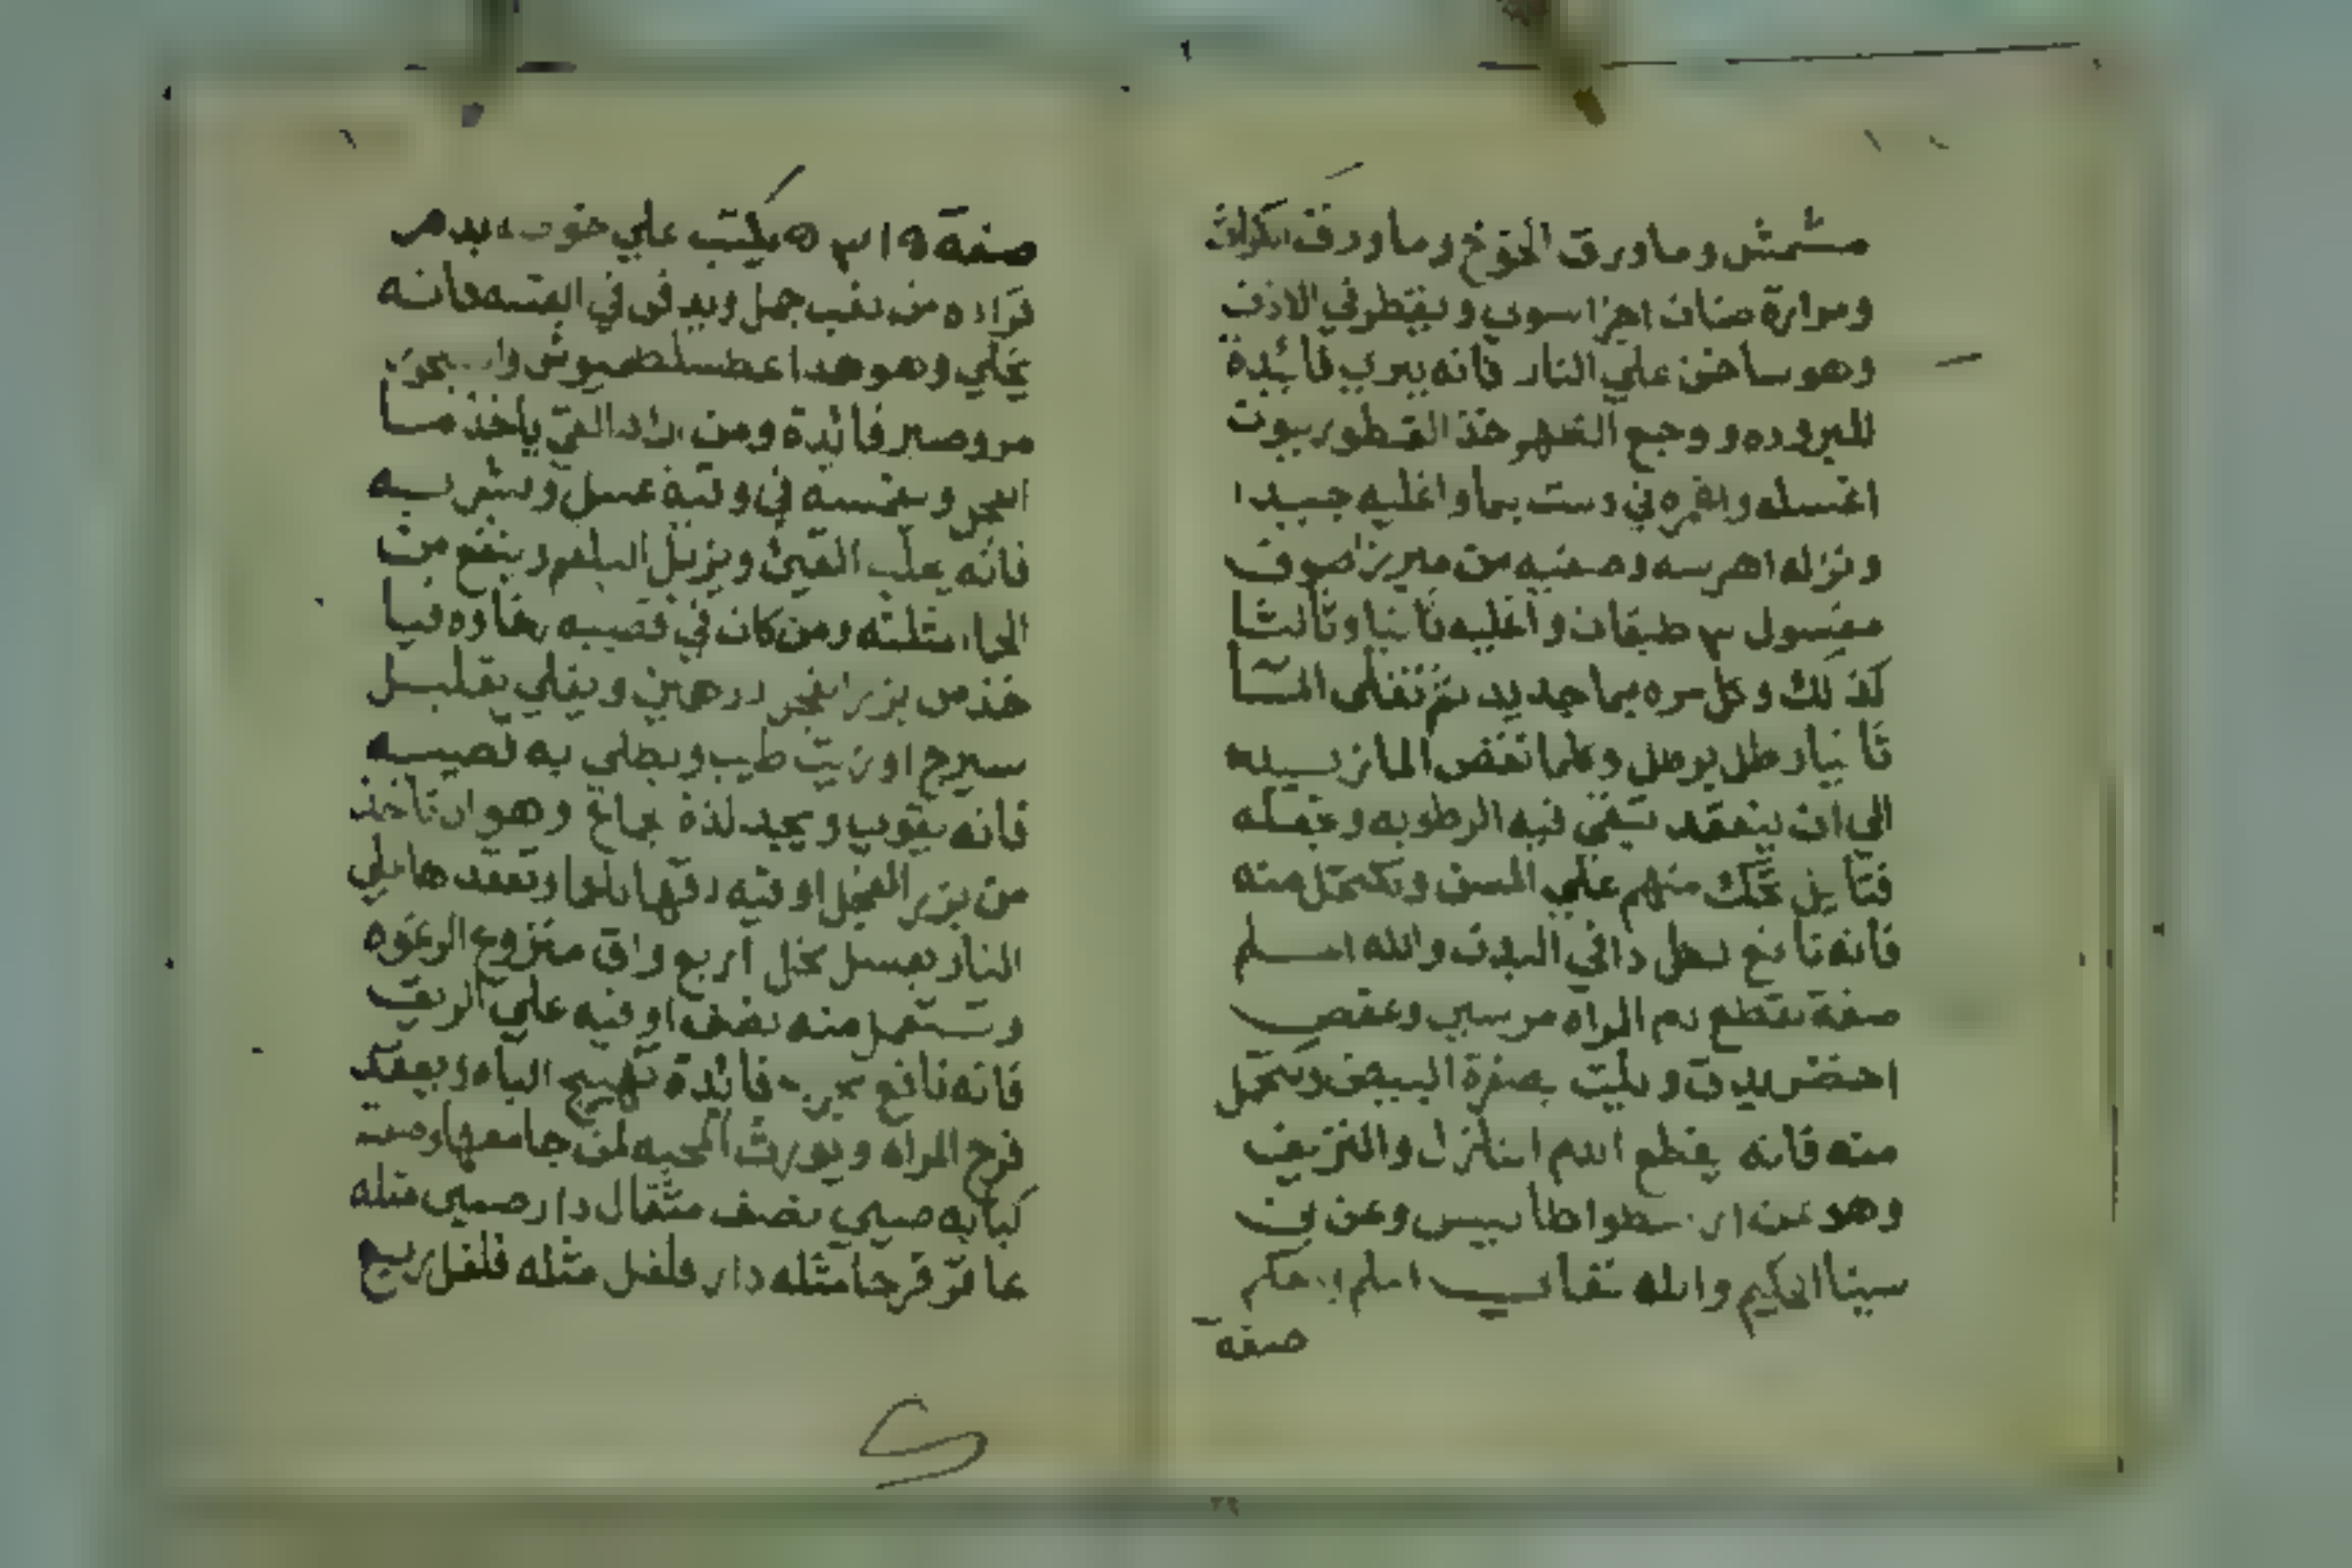 مشمش وما ورق الخوخ وما ورق الكرات
ومرارة ضان اجزا سوي ويقطر في الاذن
وهو ساخن علي النار فانه يبري فائدة
للبروده ووجع الضهر خذ القطوريوت
اغسله في دست بما واغليه جيدا
ونزله اهرسه وصفيه من ميزر صوف
مغسول ٣ طبقات واغليه ثانيا وثالثا
كذلك وكل مره بما جديد ثم تغلي الما
ثانيا رطل برطل وكلما نقص الما نزيده
الي ان ينعقد تبقي فيه الرطوبه وتجعله
فتايل تحك منهم علي المسن وتكتحل منه
فانه نافع لكل دا في البدن والله اعلم
صفة تقطع دم المراه مرسين وعفص
اخضر يدق ويلت بصفرة البيض وتتحمل
منه فانه يقطع الدم النازل والنزيف
وهو عن ارسطواطاليس وعن بن
سينا الحكيم والله تعالي اعلم احكم
صفة
صفة يكتب علي بدم
قراده من دنب جمل ويدفن في العتبه فانه
يخلي وهو هدا
مر وصبر فائدة ومن اراد القي ياخذ ما
الفجل في وقية عسل ويشربه
فانه يجلب القي ويزيل البلغم وينفع من
الحما المثلثه ومن كان في قضيبه رخاوه فليا
خذ من بزر الفجل درهمين ويغلي بقليل
سيرج او زيت طيب ويطلي به قضيبه
فانه يقوي ويجيد لذة جماع وهو ان تاخذ
من بزر الفجل اوقيه دقها ناعما وتعقدها علي
النار بعسل نحل اربع واق منزوع الرغوه
وتستعمل منه نصف اوقيه علي الريق
فانه نافع مجرب فائدة تهييج الباه ويعقد
فرج المراه ويورث المحبه لمن جامعها وصفته
كبابه صيني نصف مثقال دار صيني مثله
عاقر قرحا مثله دار فلفل مثله فلفل ربع